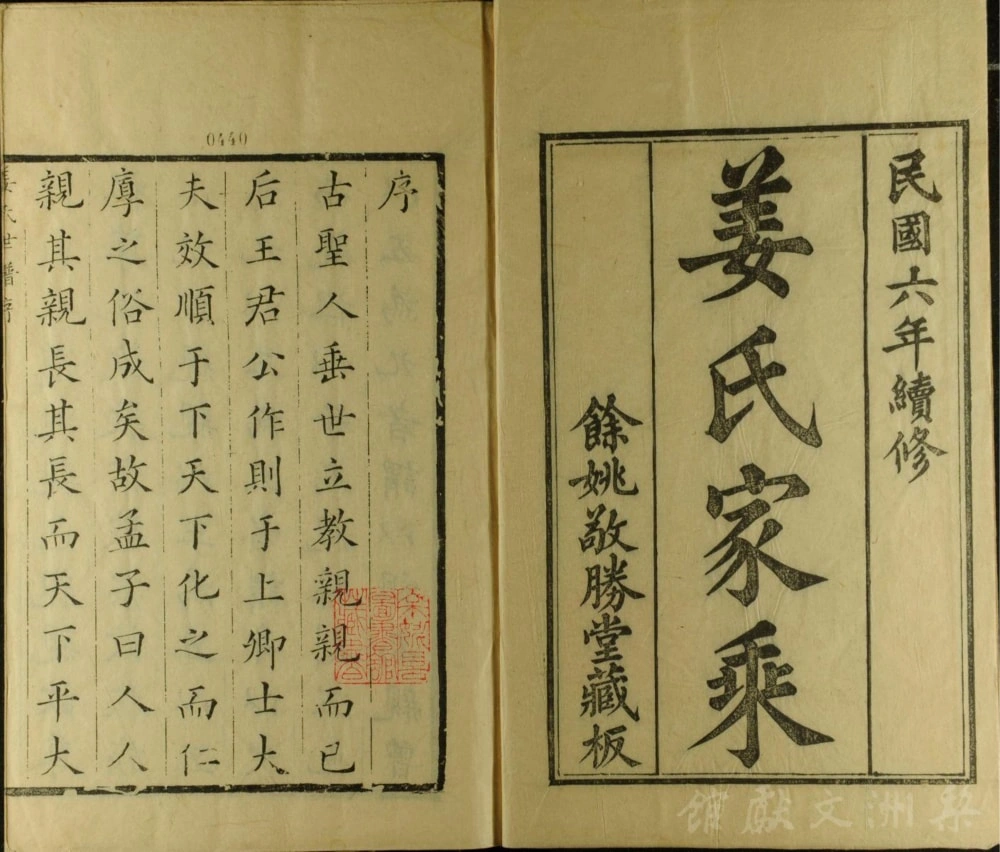 民國六年續修
姜氏家乘
餘姚敬勝堂藏板
0440
序
古聖人垂世立教親親而已
后王君公作則于上卿士大
夫效順于下天下化之而仁
厚之俗成矣故孟子曰人人
親其親長其長而天下平大
姜氏世譜序
梨洲文獻館